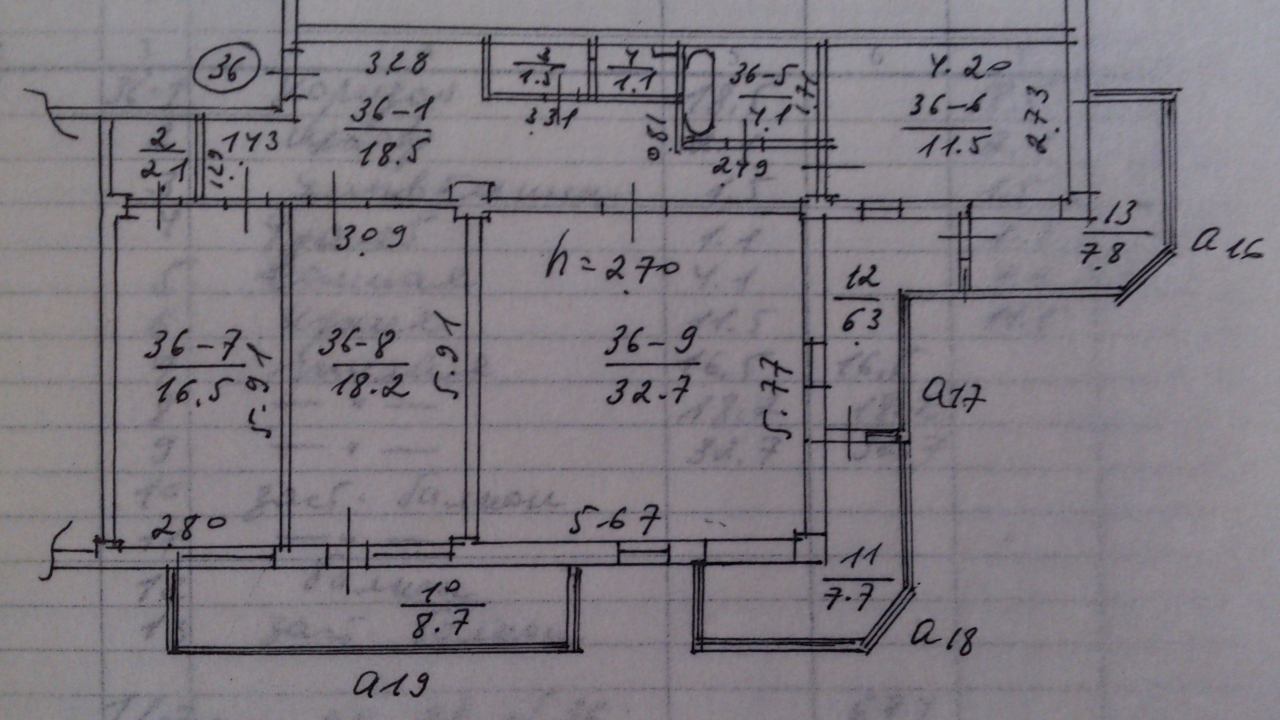 36
3.28
36-1
18.5
3
1.5
4
1.1
3.31
36-5
4.1
1.71
1.80
2.49
4.20
36-6
11.5
2.73
2
2.1
1.29
1.43
3.09
h = 2.70
36-7
16.5
5.91
2.80
36-8
18.2
5.91
36-9
32.7
5.77
5.67
12
6.3
13
7.8
a16
a17
11
7.7
a18
10
8.7
a19